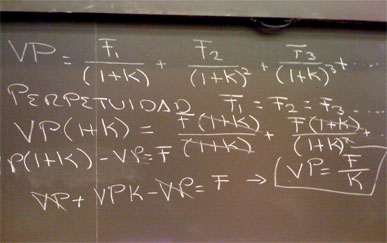 VP = F1/(1+K) + F2/(1+K)^2 + F3/(1+K)^3 + ....
PERPETUIDAD F1 = F2 = F3 ....
VP(1+K) = F(1+K)/(1+K) + F(1+K)/(1+K)^2 +
P(1+K) - VP = F
VP = F/K
VP + VPK - VP = F →